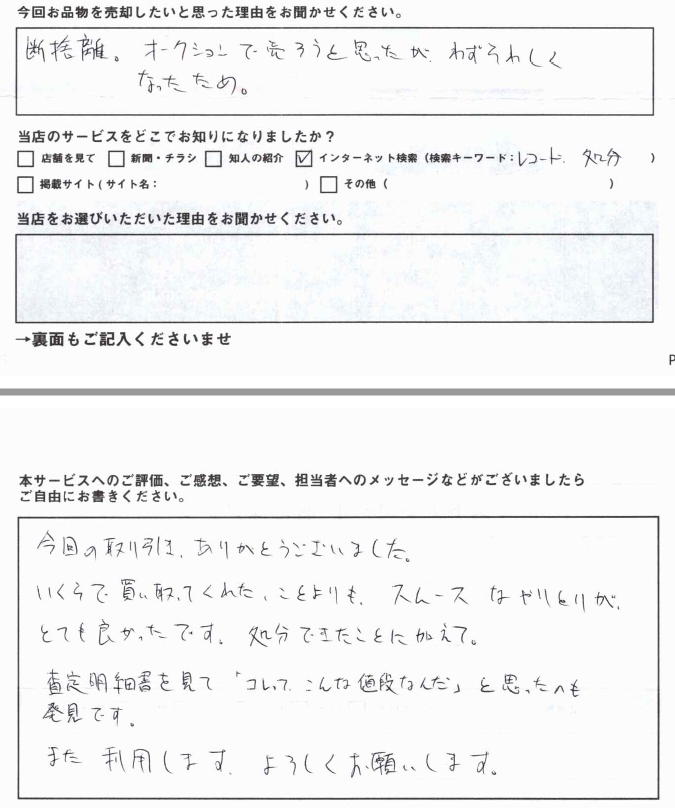 今回お品物を売却したいと思った理由をお聞かせください。
断捨離。オークションで売ろうと思ったが、わずらわしく
なったため。
当店のサービスをどこでお知りになりましたか？
店舗を見て 新聞・チラシ 知人の紹介 ☑ インターネット検索（検索キーワード：レコード、処分 ）
掲載サイト(サイト名： ） その他（ ）
当店をお選びいただいた理由をお聞かせください。
→裏面もご記入くださいませ
P
本サービスへのご評価、ご感想、ご要望、担当者へのメッセージなどがございましたら
ご自由にお書きください。
今回の取り引き、ありがとうございました。
いくらで買い取ってくれた、ことよりも、スムースなやりとりが、
とても良かったです。処分できたことに加えて。
査定明細書を見て「コレって、こんな値段なんだ」と思ったのも
発見です。
また利用します、よろしくお願いします。